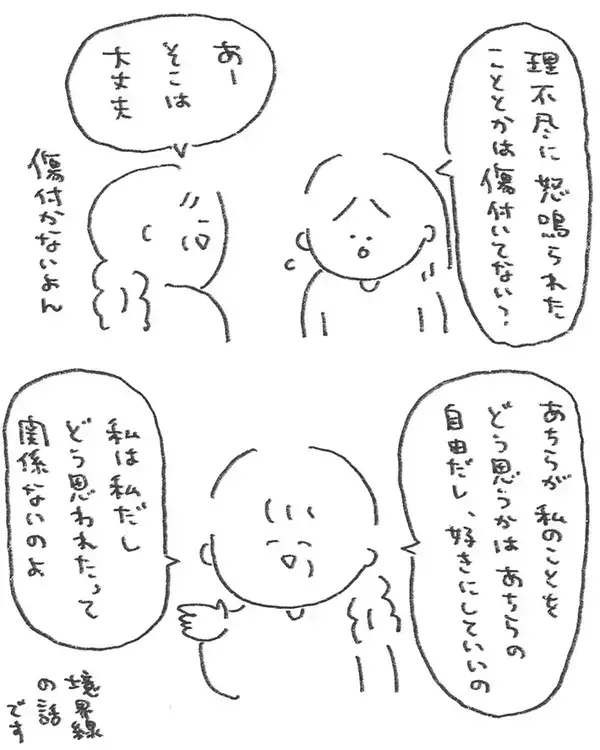 理不尽に怒鳴られた
こととかは傷付いてない？
あー
そこは
大丈夫
傷付かないよん
あちらが私のことを
どう思うかはあちらの
自由だし、好きにしていいの
私は私だし
どう思われたって
関係ないのよ
境界線
の話
です